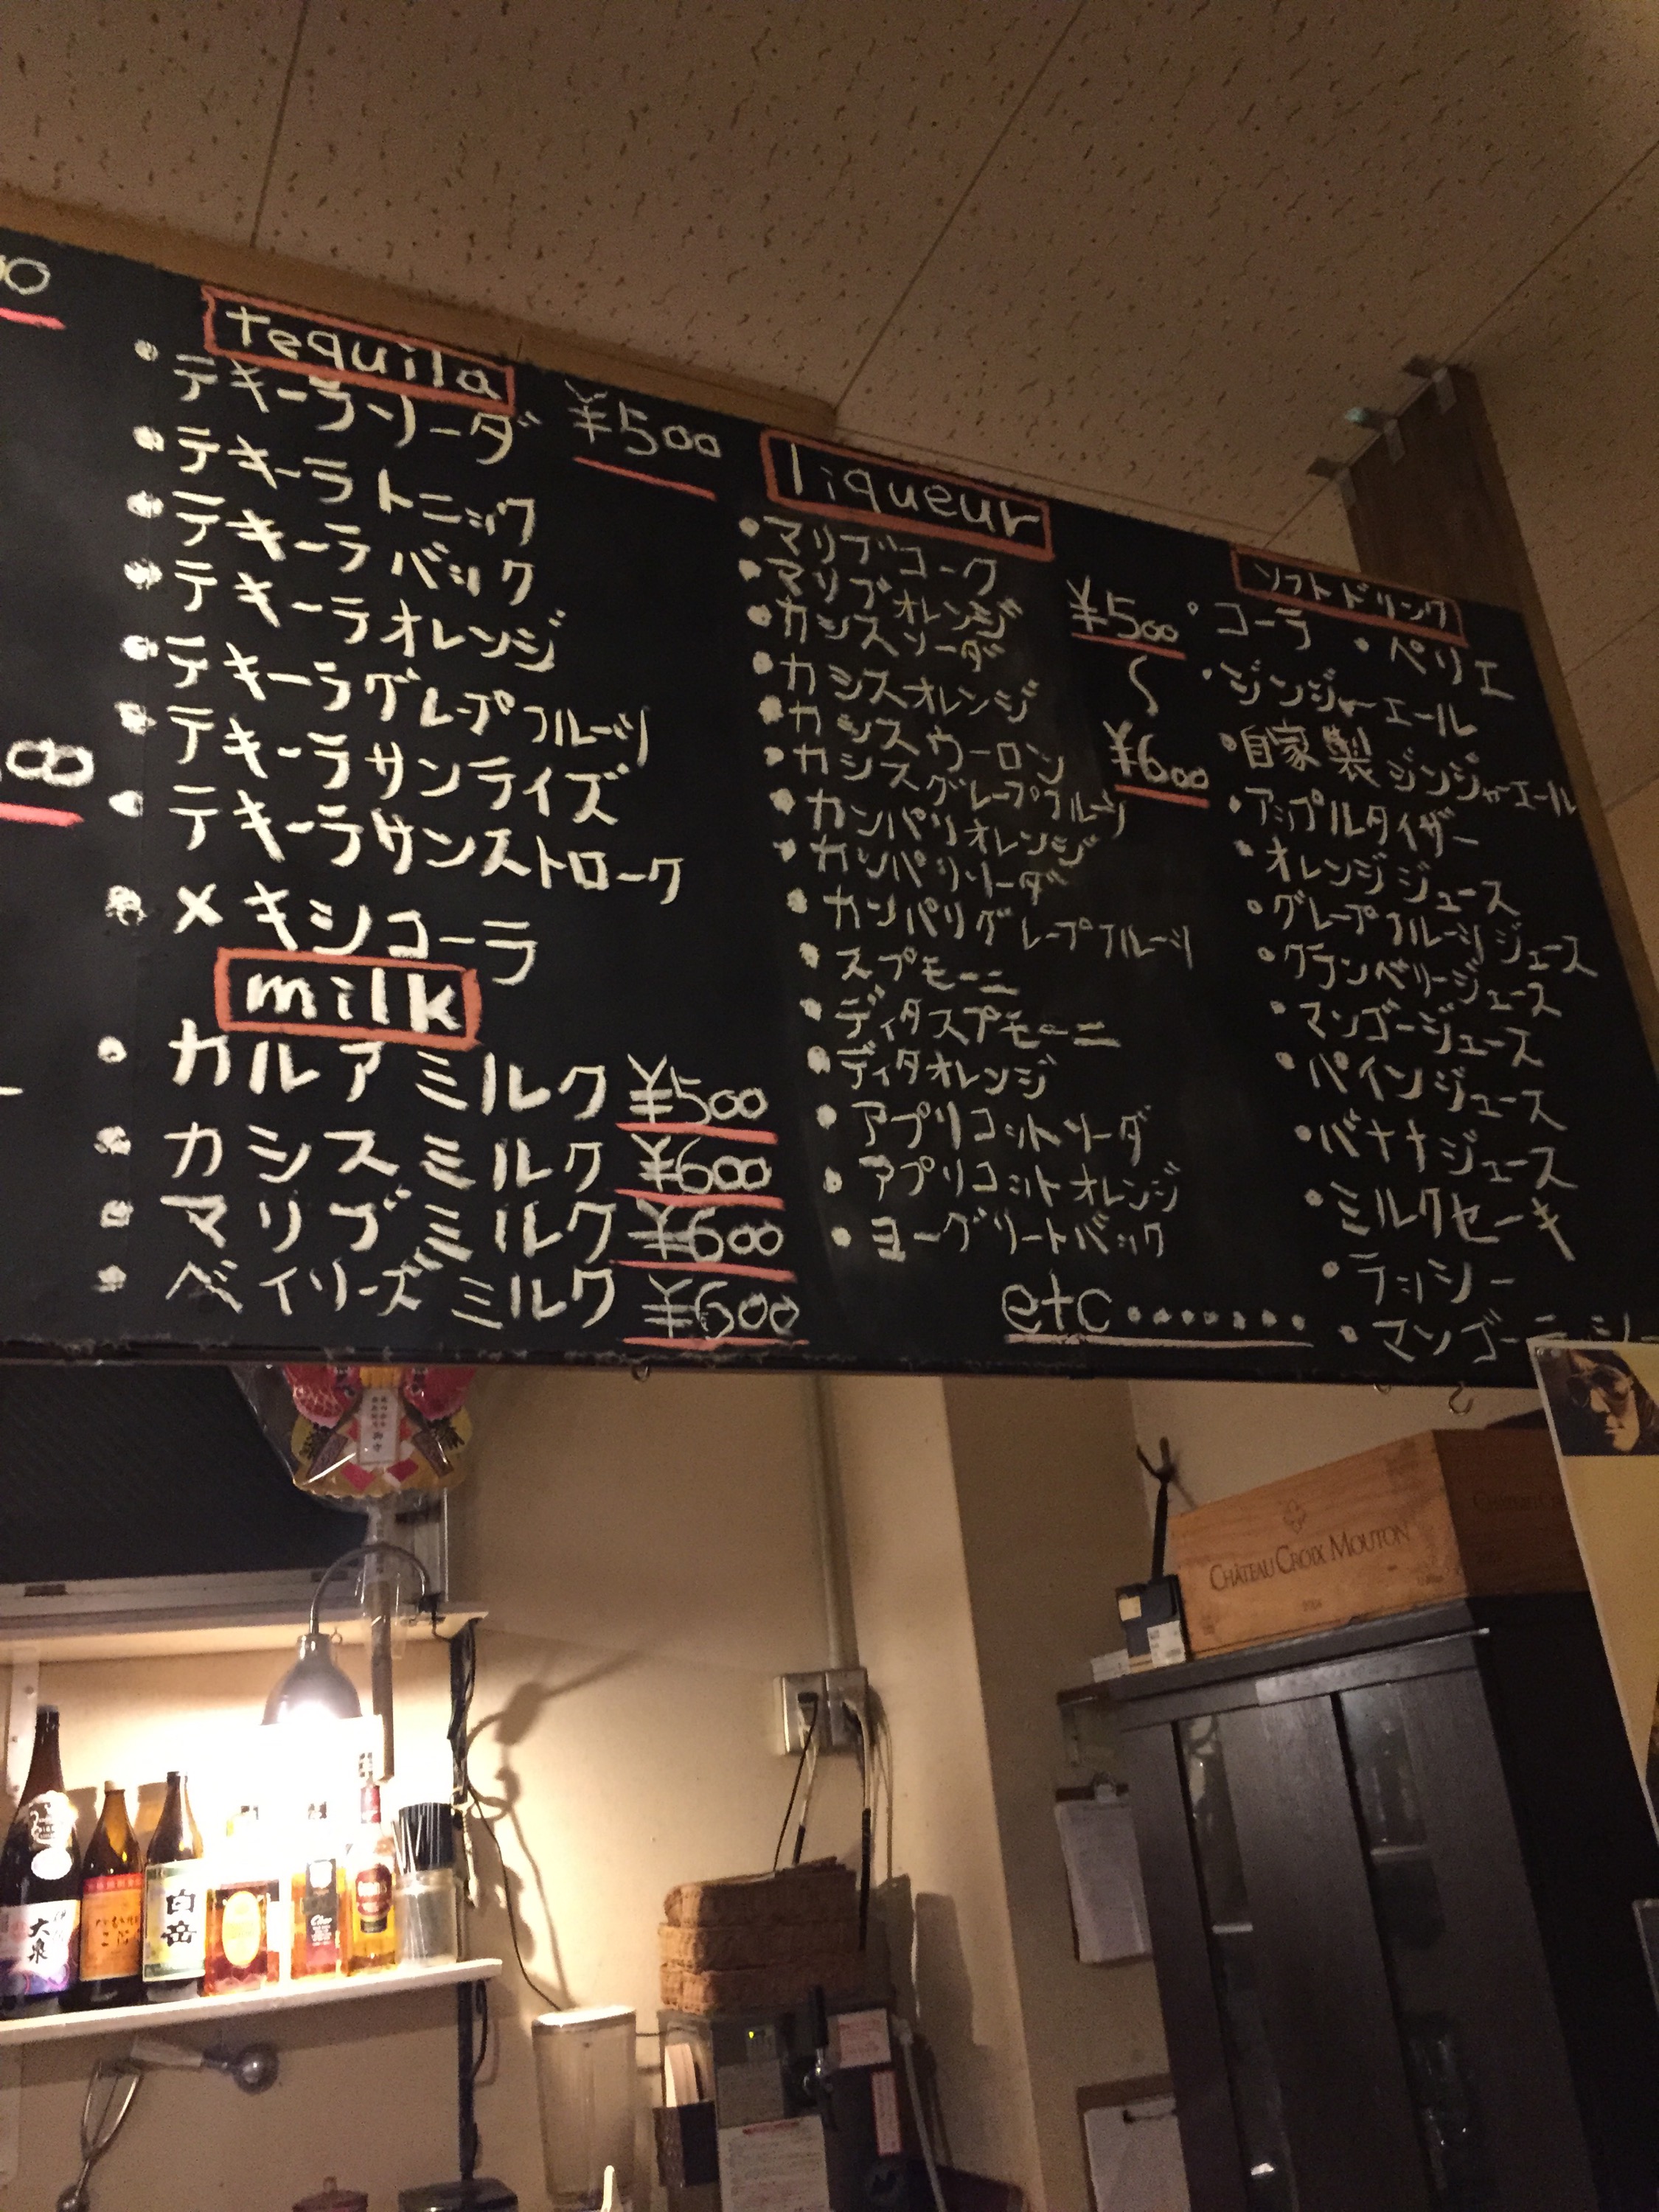 tequila
・テキーラソーダ ¥500
・テキーラトニック
・テキーラバック
・テキーラオレンジ
・テキーラグレープフルーツ
・テキーラサンライズ
・テキーラサンストローク
・メキシコーラ
milk
・カルアミルク ¥500
・カシスミルク ¥600
・マリブミルク ¥600
・ベイリーズミルク ¥600
liqueur
・マリブコーク
・マリブオレンジ
・カシスソーダ
・カシスオレンジ
・カシスウーロン
・カシスグレープフルーツ
・カンパリオレンジ
・カンパリソーダ
・カンパリグレープフルーツ
・スプモーニ
・ディタスプモーニ
・ディタオレンジ
・アプリコットソーダ
・アプリコットオレンジ
・ヨーグリートバック
etc........
¥500
〜
¥600
ソフトドリンク
・コーラ ・ペリエ
・ジンジャーエール
・自家製ジンジャーエール
・アップルタイザー
・オレンジジュース
・グレープフルーツジュース
・クランベリージュース
・マンゴージュース
・パインジュース
・バナナジュース
・ミルクセーキ
・ラッシー
・マンゴーラッシー
CHÂTEAU CROIX MOUTON
大泉
白岳